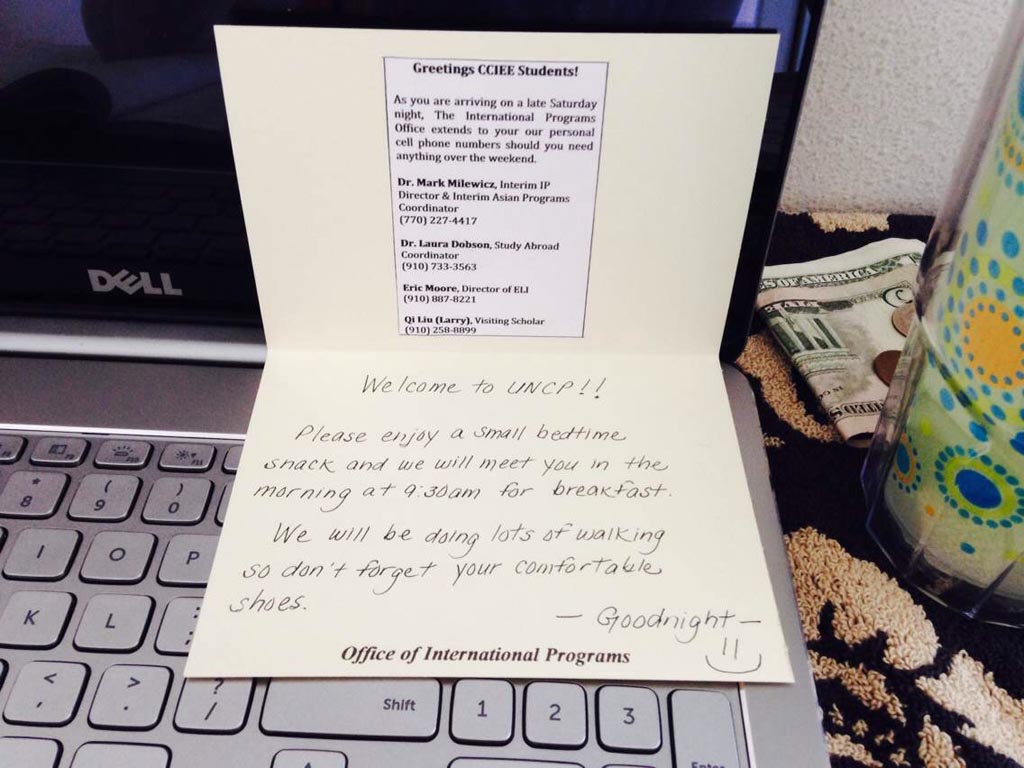 Greetings CCIEE Students!
As you are arriving on a late Saturday
night, The International Programs
Office extends to your our personal
cell phone numbers should you need
anything over the weekend.
Dr. Mark Milewicz, Interim IP
Director & Interim Asian Programs
Coordinator
(770) 227-4417
Dr. Laura Dobson, Study Abroad
Coordinator
(910) 733-3563
Eric Moore, Director of ELI
(910) 887-8221
Qi Liu (Larry), Visiting Scholar
(910) 258-8899
Welcome to UNCP!!
Please enjoy a small bedtime
snack and we will meet you in the
morning at 9:30am for breakfast.
We will be doing lots of walking
so don't forget your comfortable
shoes.
— Goodnight —
Office of International Programs
DELL
* 8
( 9
) 0
I O P
K L : ;
< ,
> .
? /
Shift
1 2 3
Enter
S OF AMERICA
UNITED S